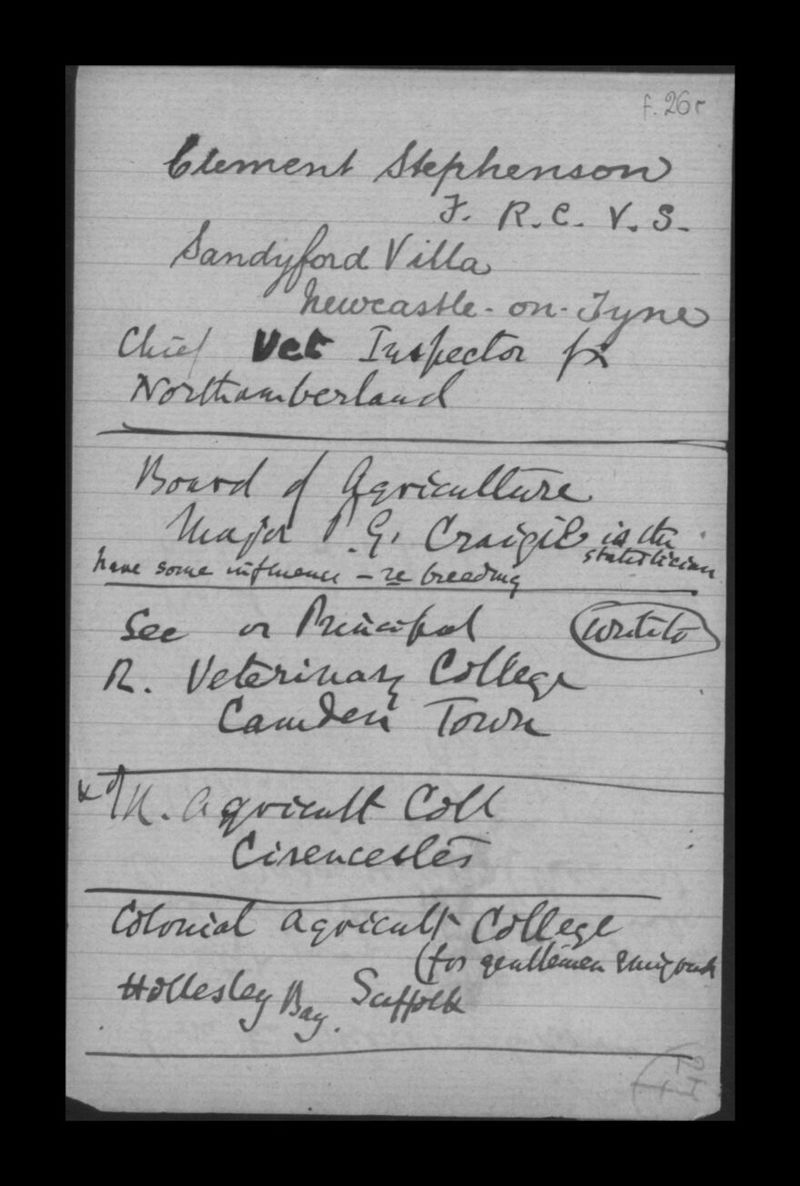 f. 26r
Clement Stephenson
F. R. C. V. S.
Sandyford Villa
Newcastle-on-Tyne
Chief Vet Inspector for
Northumberland
Board of Agriculture
Major P. G. Craigie is the
statistician
have some influence - re breeding
See or Principal
write to
R. Veterinary College
Camden Town
& of R. Agricult Coll
Cirencester
Colonial Agricult College
(for gentlemen Emigrants
Hollesley Bay. Suffolk